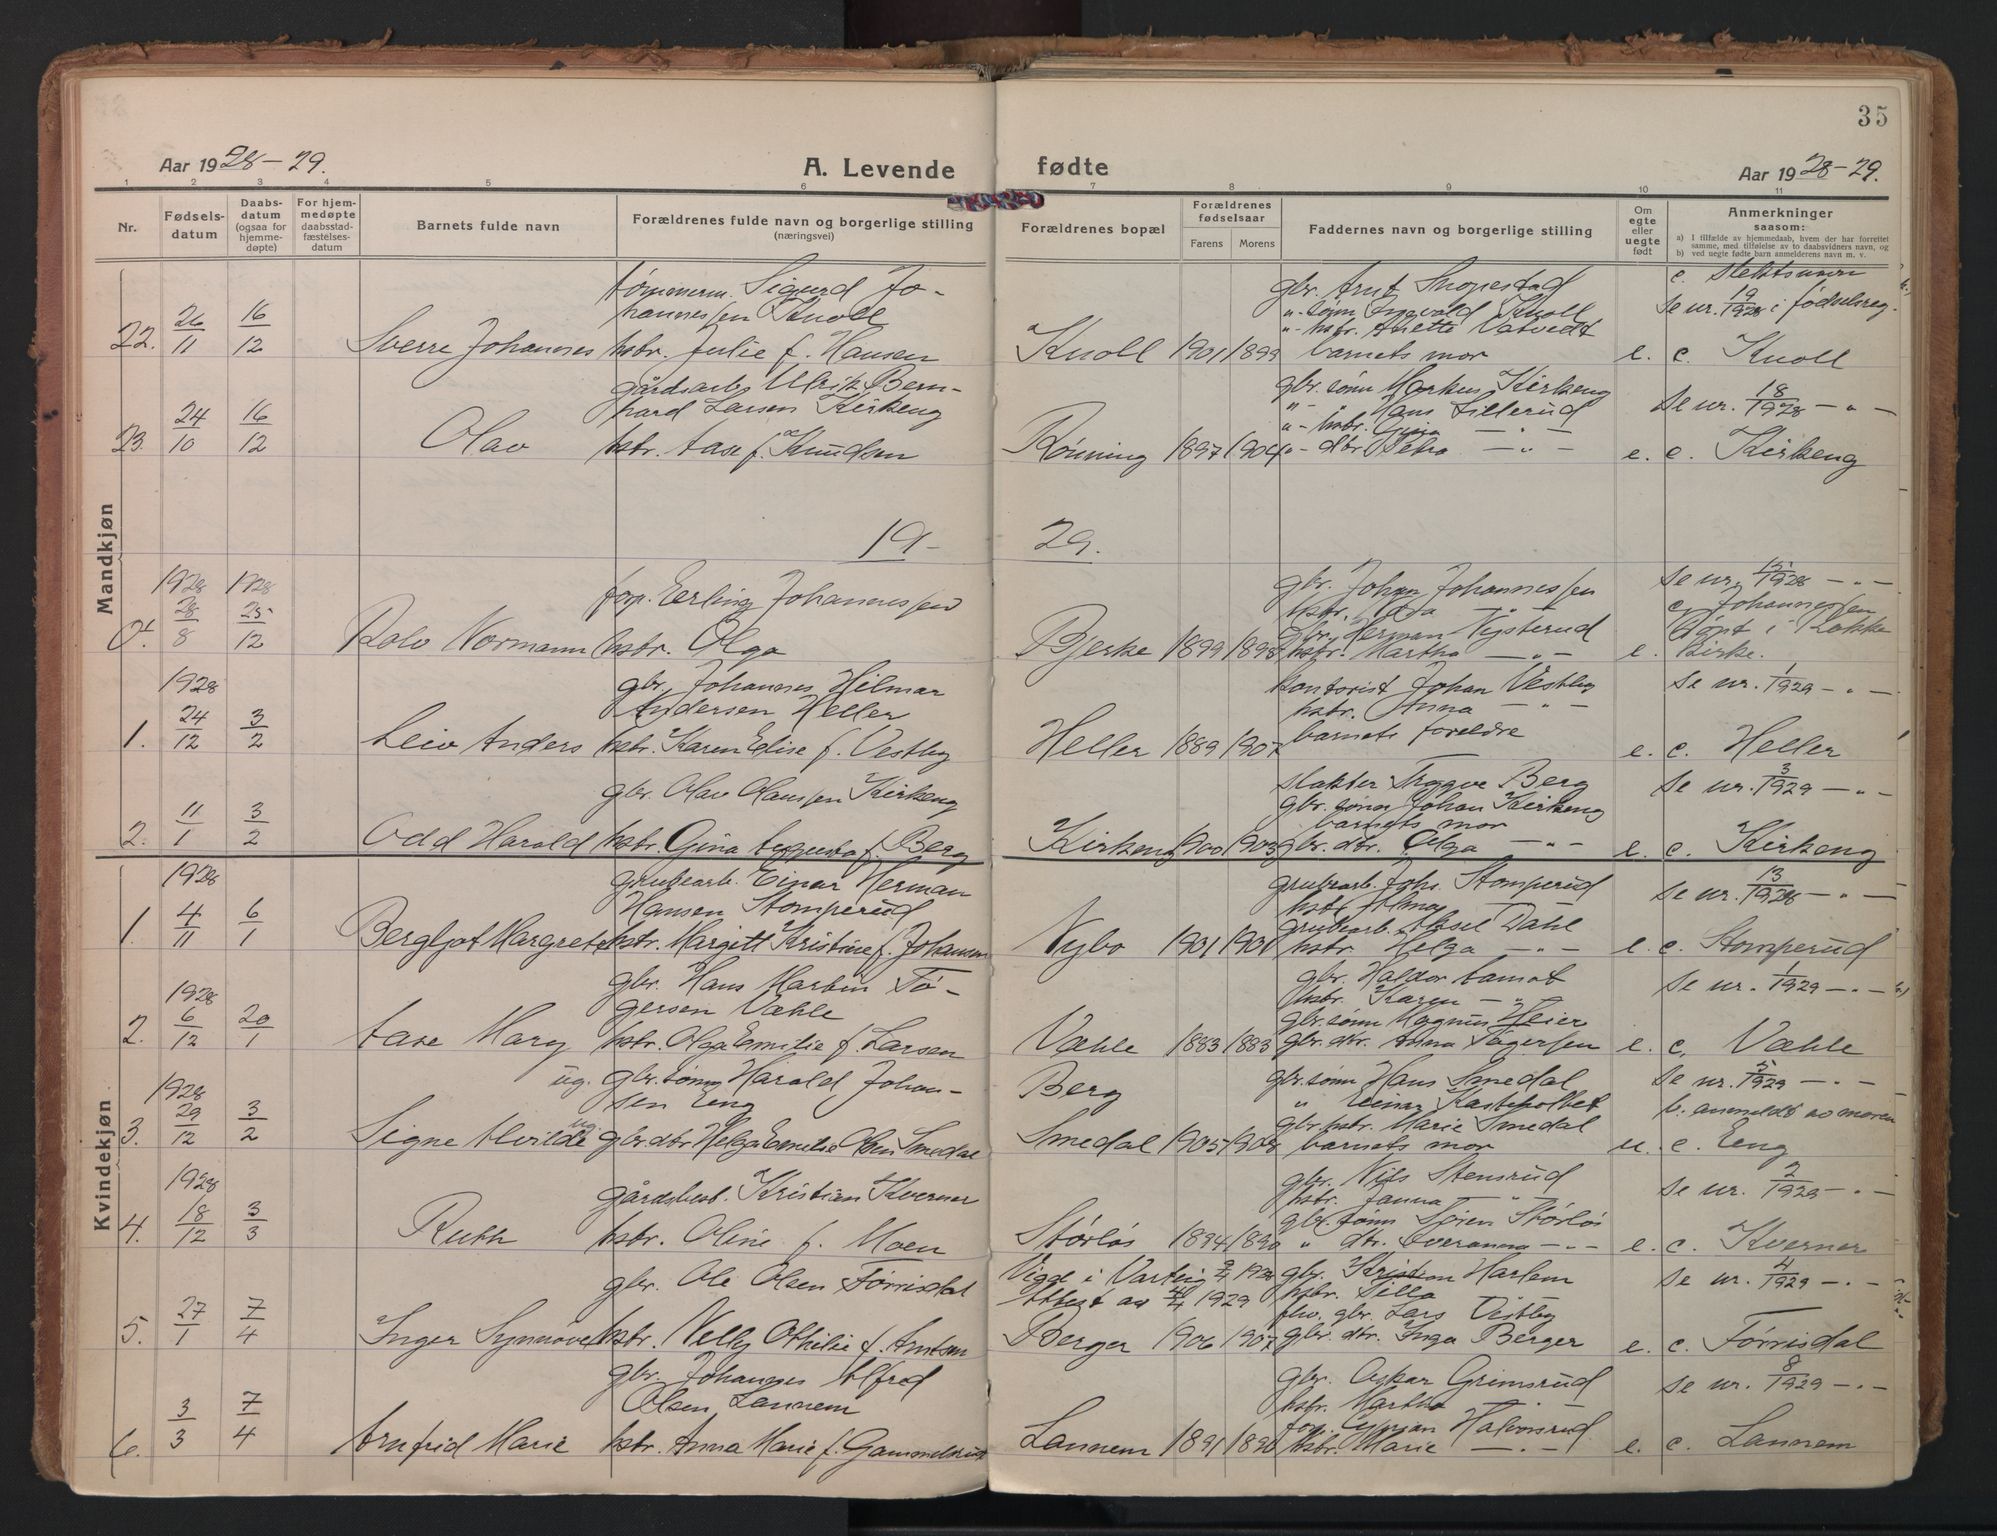 35
Aar 1928-29.
A. Levende
fødte
Aar 1928-29.
1 2 3 4 5 6 7 8 9 10 11
Nr.
Fødsels-
datum
Daabs-
datum
(ogsaa for
hjemme-
døpte)
For hjem-
medøpte
daabsstad-
fæstelses-
datum
Barnets fulde navn
Forældrenes fulde navn og borgerlige stilling
(næringsvei)
Forældrenes bopæl
Forældrenes
fødselsaar
Farens Morens
Faddernes navn og borgerlige stilling
Om
egte
eller
uegte
født
Anmerkninger
saasom:
a) I tilfælde av hjemmedaab, hvem der har forrettet
samme, med tilføielse av to daabsvidners navn, og
b) ved uegte fødte barn anmelderens navn m. v.
Mandkjøn
22. 26/11 16/12 Sverre Johannes
tømmerm. Sigurd Jo-
hannessen Knoll
hstr. Julie f. Hansen
Knoll 1901 1899
gbr. Arnt Snopestad
"- sønn Ingvald Knoll
"- hstr. Anette Vatvedt
barnets mor
e.
c. slektsnavn
Se nr. 19/1928 i fødselsreg.
c. Knoll
23. 24/10 16/12 Olav
gårdsarb. Ulrik Bern-
hard Larsen Kirkeng
hstr. Aase f. Knudsen
Rønning 1897 1904
gbr. sønn Markus Kirkeng
"- " Hans Lillerud
"- hstr. Gina -"-
"- dtr. Petra -"-
e.
Se nr. 18/1928 -"-
c. Kirkeng
19- 29.
0. 1928 28/8 1928 25/12 Rolv Normann
forp. Erling Johannessen
hstr. Olga
Bjerke 1899 1898
gbr. Johan Johannessen
hstr. Ida -"-
gbr. Herman Nysterud
hstr. Martha -"-
e.
Se nr. 15/1928 -"-
c. Johannessen
Døpt i Rakke-
kirke.
1. 1928 24/12 3/2 Leiv Anders
gbr. Johannes Hilmar
Andersen Heller
hstr. Karen Elise f. Vestby
Heller 1889 1907
kontorist Johan Vestby
hstr. Anna -"-
barnets foreldre
e.
Se nr. 1/1929 -"-
c. Heller
2. 11/1 3/2 Odd Harald
gbr. Olav Olaussen Kirkeng
hstr. Gina Augusta f. Berg
Kirkeng 1900 1903
slakter Trygve Berg
gbr. sønn Johan Kirkeng
barnets mor
gbr. dtr. Olga -"-
e.
Se nr. 3/1929 -"-
c. Kirkeng
Kvindekjøn
1. 1928 4/11 6/1 Bergljot Margrete
grubearb. Einar Herman
Hansen Stomperud
hstr. Margitt Kristine f. Johansen
Nybo 1901 1901
grubearb. Johs. Stomperud
hstr. Hanna
grubearb. Aksel Dahl
hstr. Helga -"-
e.
Se nr. 13/1928 -"-
c. Stomperud
2. 1928 6/12 20/1 Aase Mary
gbr. Hans Martin Tø-
gersen Væhle
hstr. Olga Emilie f. Larsen
Væhle 1883 1883
gbr. Haldor Aamot
hstr. Karen -"-
gbr. sønn Magnus Heier
gbr. dtr. Anna Tøgersen
e.
Se nr. 1/1929 -"-
c. Væhle
3. 1928 29/12 3/2 Signe Alvilde
ug. gbr. sønn Harald Johan-
sen Eng
ug. gbr. dtr. Helga Emilie Olsen Smedal
Berg
Smedal 1905 1908
gbr. sønn Hans Smedal
" Einar Kasteholtet
gbr. hstr. Marie Smedal
barnets mor
u.
Se nr. 5/1929 -"-
b. anmeldt av moren
c. Eng
4. 1928 18/12 3/3 Ruth
gårdsbest. Kristian Kverner
hstr. Oline f. Moen
Størløs 1894 1890
gbr. Nils Stensrud
hstr. Janna "
gbr. sønn Søren Størløs
" dtr. Overanna -"-
e.
Se nr. 2/1929 -"-
c. Kverner
5. 27/1 7/4 Inger Synnøve
gbr. Ole Olsen Tørrisdal
hstr. Nelly Othilie f. Arntsen
Vigde i Varteig
Attest av 4/4 1929
Berger 1906 1907
gbr. Kristian Harlem
hstr. Silla
fhv. gbr. Lars Vestby
gbr. dtr. Inga Berger
e.
Se nr. 4/1929 -"-
c. Tørrisdal
6. 3/3 7/4 Arnfrid Marie
gbr. Johannes Alfred
Olsen Lannem
hstr. Anna Marie f. Gammelsrud
Lannem 1891 1890
gbr. Oskar Grimsrud
hstr. Martha
forp. Halvorsrud
hstr. Marie -"-
e.
Se nr. 8/1929 -"-
c. Lannem